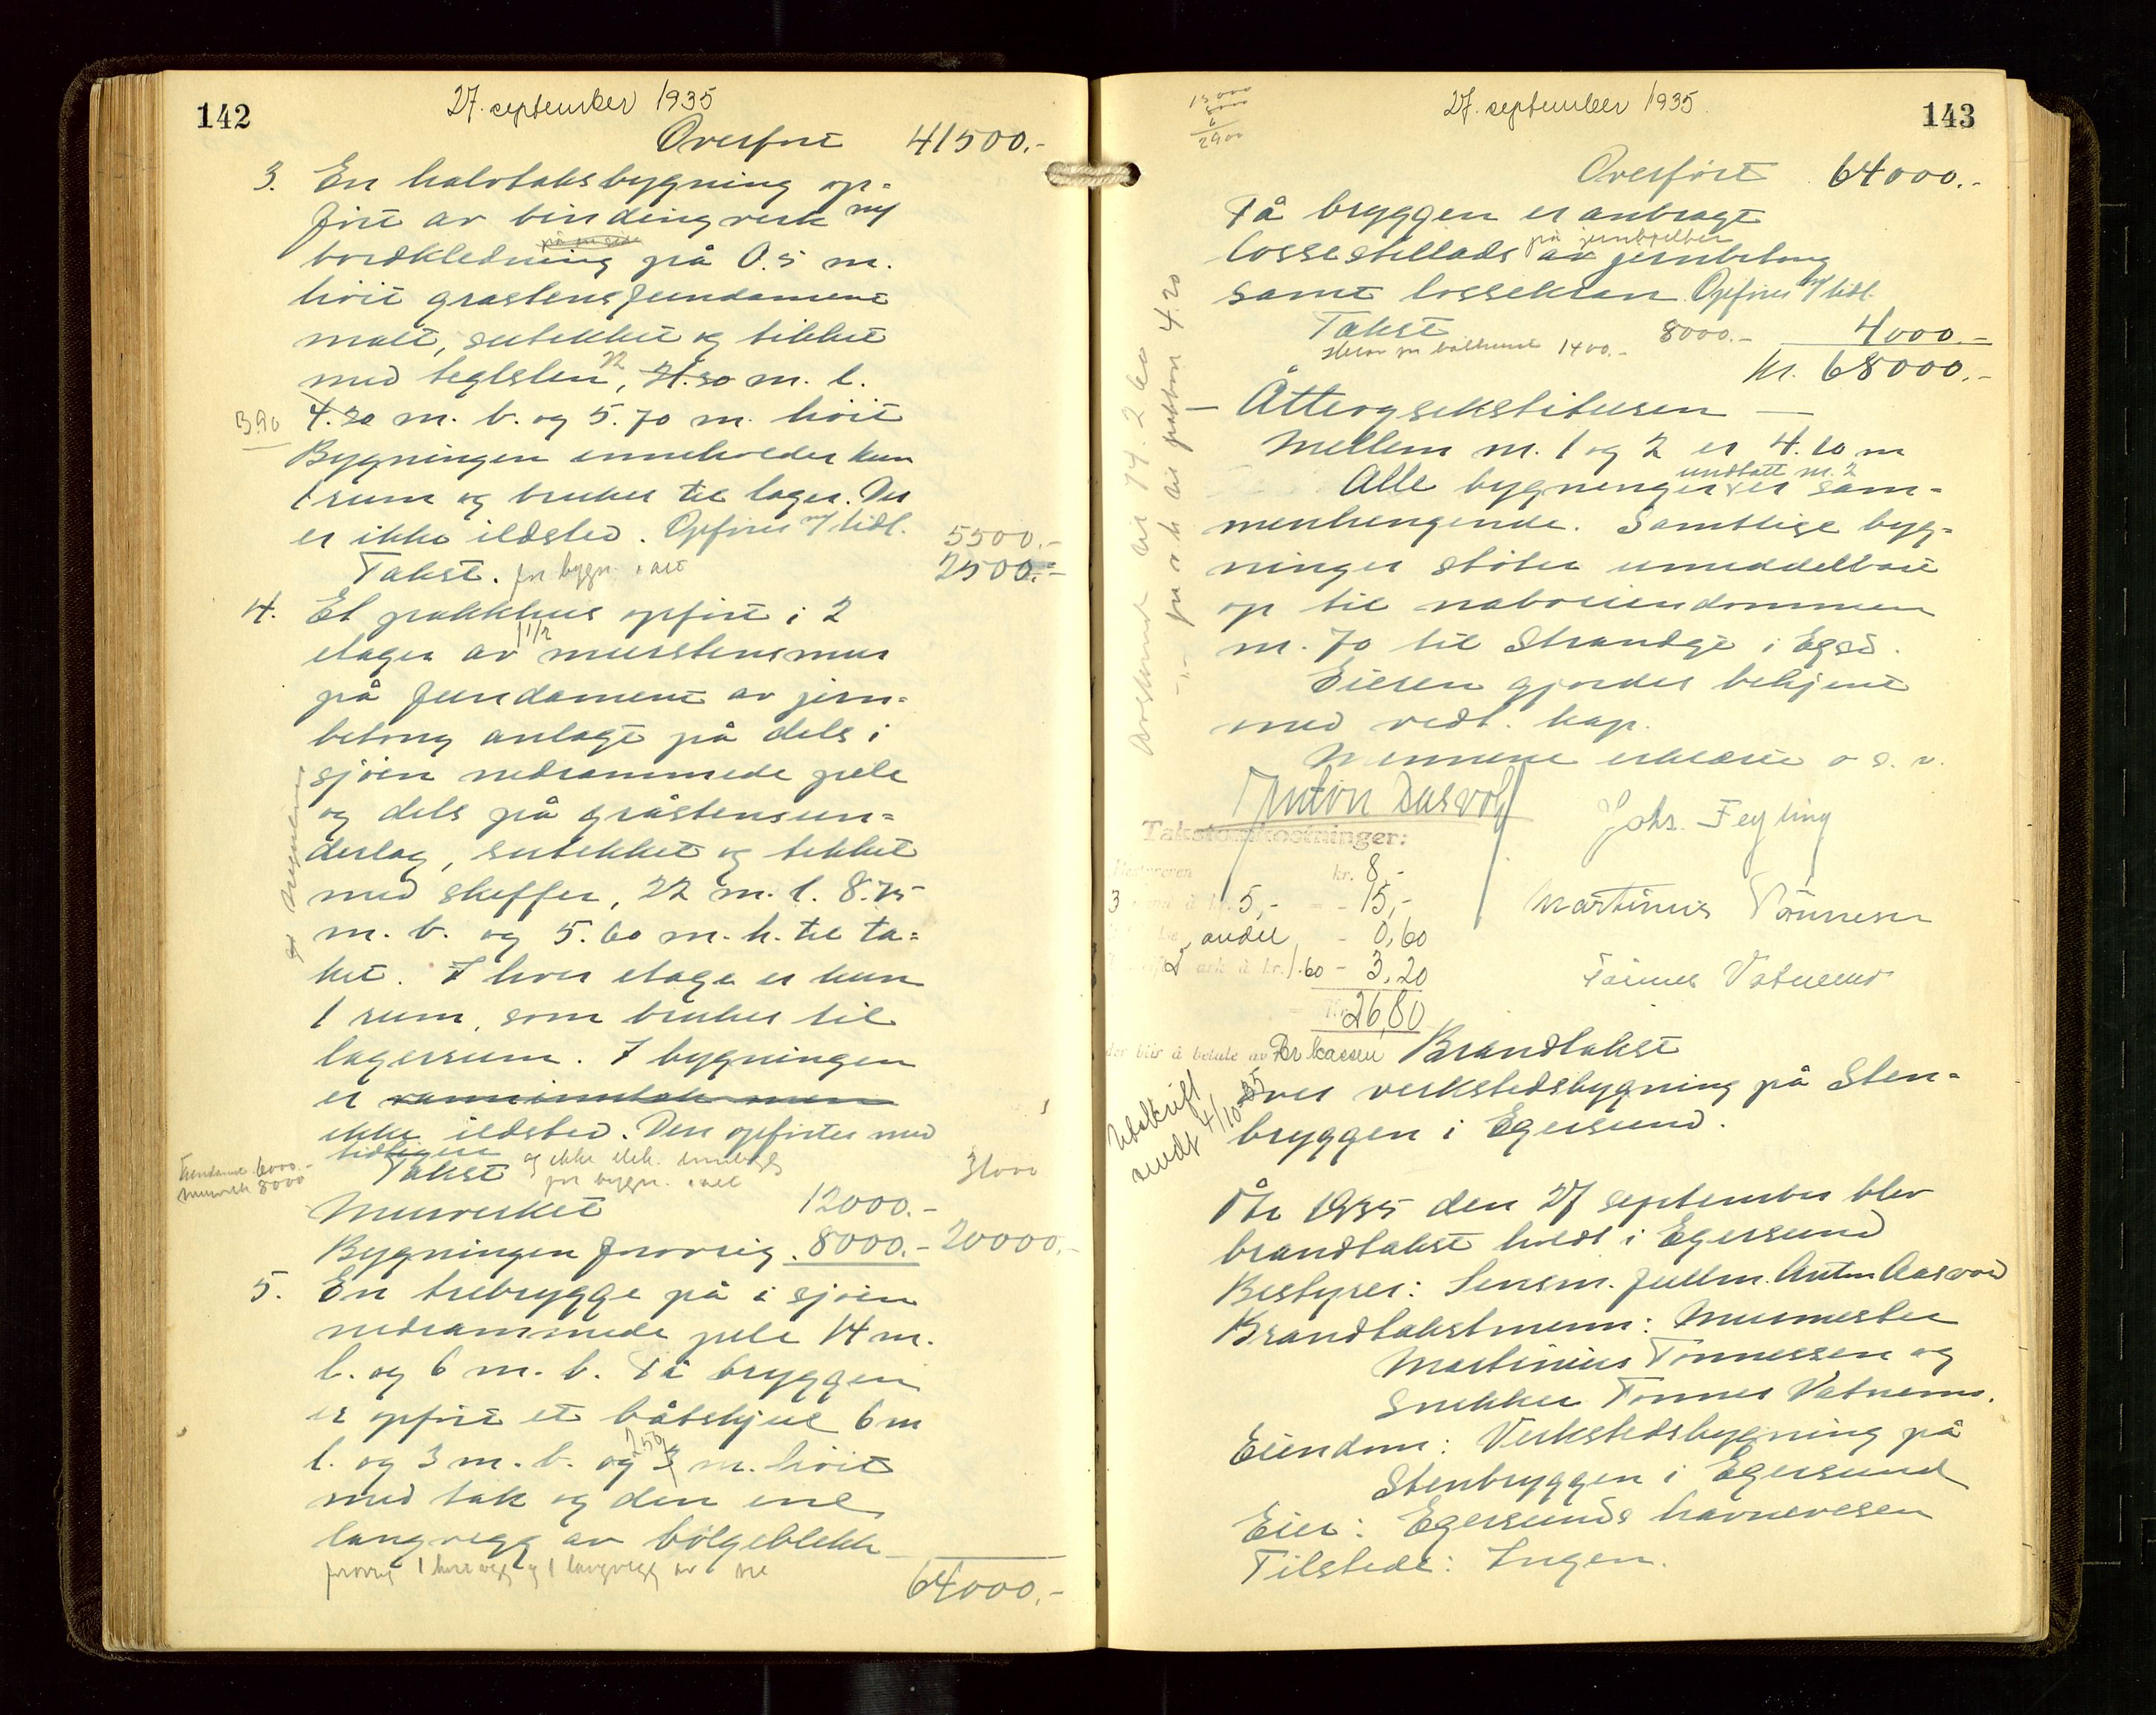 142
27. september 1935
Overført 41500.-
3. En halvtaksbygning op-
ført av bindingverk m/
på en side
bordkledning på 0.5 m.
høit gråstensfundament
malt, sutekket og tekket
med teglsten, 22 21.30 m. l.
3.90 4.20 m. b. og 5.70 m. høit
Bygningen inneholder kun
1 rum og brukes til lager. Der
er ikke ildsted. Opføres m/ tidl. 5500.-
Takst. for bygn. i alt 2500.-
4. Et pakkhus opført i 2
etager av 1 1/2 murstensmur
på fundament av jern-
betong anlagt på dels i
sjøen nedrammede pele
og dels på gråstensun-
derlag, sutekket og tekket
med skeffer, 22 m. l. 8.75
m. b. og 5.60 m. h. til ta-
ket. I hver etage er kun
1 rum, som brukes til
lagerrum. I bygningen
er vanninntak men
ikke ildsted. Den opføres med
tidligere og ikke elek. innlagt
Fundament 6000.-
Murverk 8000
Takst for bygn. i alt 31000
Murverket 12000.-
Bygningen forøvrig 8000.- 20000.-
5. En trebrygge på i sjøen
nedrammede pele 14 m.
l. og 6 m. b. På bryggen
er opført et båtskjul 6 m
l. og 3 m. b. og 2.50 3 m. høit
med tak og den ene
langvegg av bølgeblekk
forøvrig 1 tverrvegg og 1 langvegg av tre
64000.-
143
27. september 1935.
15000
2900
Overført 64000.-
På bryggen er anbragt
på jernbjelker
lossestillads av jernbetong
samt lossekran. Opføres m/ tidl.
Takst 8000.- 4000.-
1400.-
kr. 68000.-
- Åttergsekstitusen -
Mellem nr. 1 og 2 er 4.10 m
undtatt nr. 2
Alle bygninger er sam-
menhengende. Samtlige byg-
ninger støter umiddelbart
op til naboeiendommen
nr. 70 til Strandgt i Egsd.
Eieren gjordes bekjent
med vedt. kap.
Mennene erklærte o. s. v.
Anton Aasvold
Johs. Feyling
Martinius Tønnesen
Tønnes Vatnemo
Takstomkostninger:
Bestyreren kr. 8,-
3 menn à kr. 5,- = - 15,-
andel - 0,60
2 ark à kr. 1.60 - 3,20
Kr. 26,80
der blir å betale av Br.kassen
Utskrift
sendt 4/10-35
Brandtakst
over verkstedsbygning på Sten-
bryggen i Egersund.
År 1935 den 27 september blev
brandtakst holdt i Egersund
Bestyrer: Lensm. fullm. Anton Aasvold
Brandtakstmenn: Murmester
Martinius Tønnessen og
Snekker Tønnes Vatnemo.
Eiendom: Verkstedsbygning på
Stenbryggen i Egersund
Eier: Egersunds havnevesen
Tilstede: Ingen.